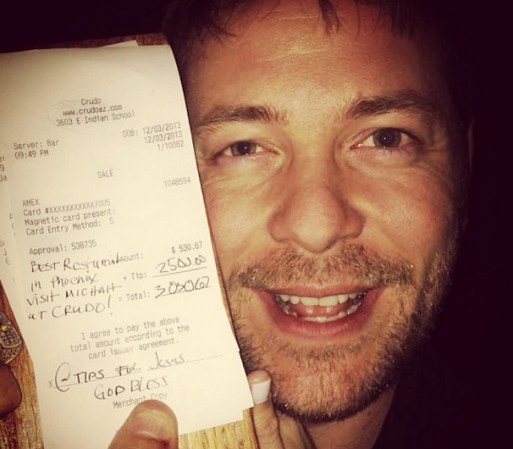 Crudo
www.crudoaz.com
3603 E Indian School
Server: Bar
DOB: 12/03/2013
09:49 PM
12/03/2013
1/10082
SALE
AMEX
1048594
Card #XXXXXXXXXXX7005
Magnetic card present:
Card Entry Method: S
Approval: 536735
Amount: $ 530.67
BEST Restaurant
in PHOENIX
+ Tip: 2500.00
VISIT MICHAH
= Total:
AT CRUDO!
I agree to pay the above
total amount according to the
card issuer agreement.
x @ TIPS FOR Jesus
GOD BLESS
Merchant Copy